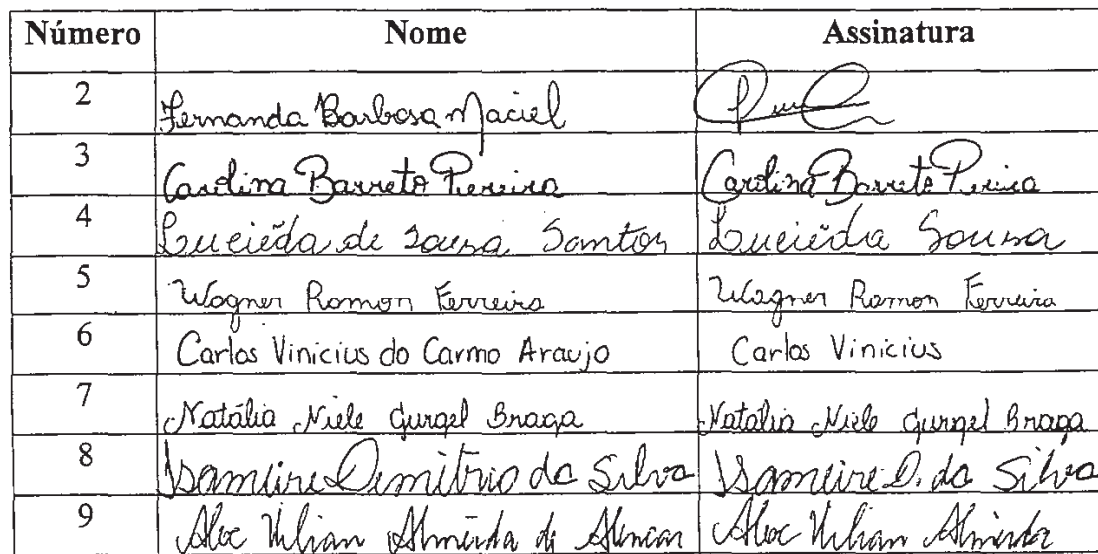 Número Nome Assinatura
2 Fernanda Barbosa Maciel
3 Carolina Barreto Pereira Carolina Barreto Pereira
4 Lucieda de Sousa Santos Lucieda Sousa
5 Wagner Ramon Ferreira Wagner Ramon Ferreira
6 Carlos Vinicius do Carmo Araujo Carlos Vinicius
7 Natália Niele Gurgel Braga Natália Niele Gurgel Braga
8 Isameire Dimitrio da Silva Isameire D. da Silva
9 Alex Almeida de Alencar Alex Almeida